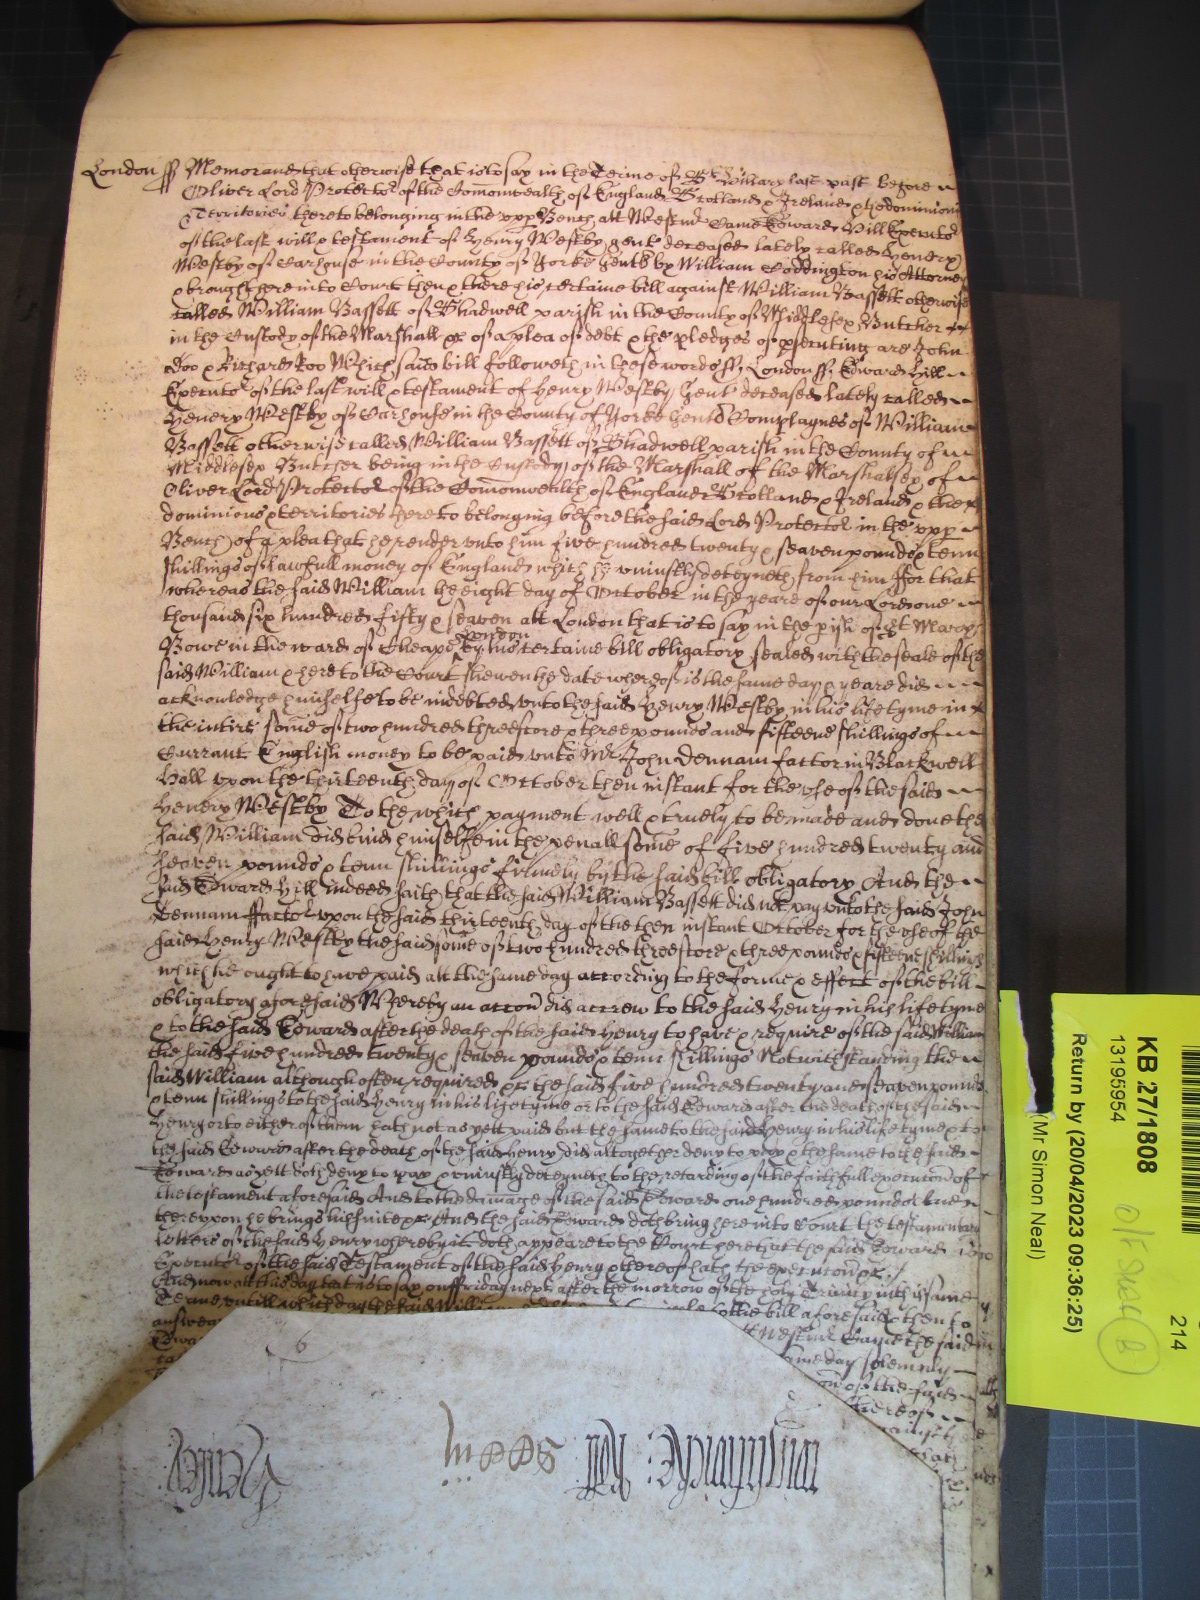 London ss Memorand that otherwise that is to say in the Terme of St Hillary last past before
Oliver Lord Protector of the Comonwealth of England Scotland & Ireland & the dominions
Territories thereto belonging in the upp Bench att Westmr Came Edward Hill Executor
of the last will & testament of Henry Westby gent deceased lately called Henery
Westby of Carhouse in the County of Yorke gent by William Coddington his Attorney
& brought here into Court then & there his certaine bill against William Bassett otherwise
called William Bassett of Shadwell parish in the County of Middlesex Butcher
in the Custody of the Marshall &c of a plea of debt & the pledges of psecuting are John
Doo & Richard Roo Which said bill followeth in these words ss London ss Edward Hill
Executor of the last will & testament of Henry Westby Gent deceased lately called
Henery Westby of Carhouse in the County of Yorke gent Complaynes of William
Bassett otherwise called William Bassett of Shadwell parish in the County of
Middlesex Butcher being in the Custody of the Marshall of the Marshalsey of
Oliver Lord Protector of the Comonwealth of England Scotland & Ireland & the
dominions & territories hereto belonging before the said Lord Protector in the upp
Bench of a plea that he render unto him five hundred twenty & seaven pounds & tenn
shillings of lawfull money of England which he uniustly deteyneth from him ffor that
whereas the said William the eight day of October in the yeare of our Lord one
thousand six hundred fifty & seaven att London that is to say in the pish of St Mary
Bowe in the ward of Cheape London by his certaine bill obligatory sealed with the seale of the
said William & here to the Court shewen the date whereof is the same day & yeare did
acknowledge himselfe to be indebted unto the said Henry Westby in his life tyme in
the intire some of two hundred threescore & three pounds and fifteene shillings of
Currant English money to be paid unto Mr John Dennam factor in Blackwell
Hall upon the thirteenth day of October then instant for the use of the said
Henery Westby To the which payment well & truely to be made and done the
said William did bind himselfe in the penall some of five hundred twenty and
seaven pounds & tenn shillings firmely by the said bill obligatory And the
said Edward Hill indeed saith that the said William Bassett did not pay unto the said John
Dennam ffactor upon the said thirteenth day of the then instant October for the use of the
said Henry Westby the said some of two hundred threescore & three pounds & fifteene shillings
which he ought to have paid att the same day according to the forme & effect of the bill
obligatory aforesaid Whereby an accon did accrew to the said Henry in his life tyme
& to the said Edward after the death of the said Henry to have & require of the said William
the said five hundred twenty & seaven pounds & tenn shillings Notwithstanding the
said William although often required &c the said five hundred twenty and seaven pounds
& tenn shillings to the said Henry in his life tyme or to the said Edward after the death of the said
Henry or to either of them hath not as yett paid but the same to the said Henry in his life tyme & to
the said Edward after the death of the said Henry did altogether deny to pay & the same to the said
Edward as yett doth deny to pay & uniustly deteyneth to the retarding of the faithfull execucon of
the testament aforesaid And to the damage of the said Edward one hundred pounds And
thereupon he brings his suite &c And the said Edward doth bring here into Court the testamentary
letters of the said Henry whereby it doth appeare to the Court here that the said Edward is
Executor of the said Testament of the said Henry & thereof hath the execucon &c
And now att this day that is to say on ffriday next after the morrow of the holy Trinity in this same
Terme untill which day the said William
to the bill aforesaid & then to
answear
att Westmr Came the said
Edward
same day solemnly
of the said
thereof
6
KB 27/1808
13195954
Return by (20/04/2023 09:36:25)
(Mr Simon Neal)
214